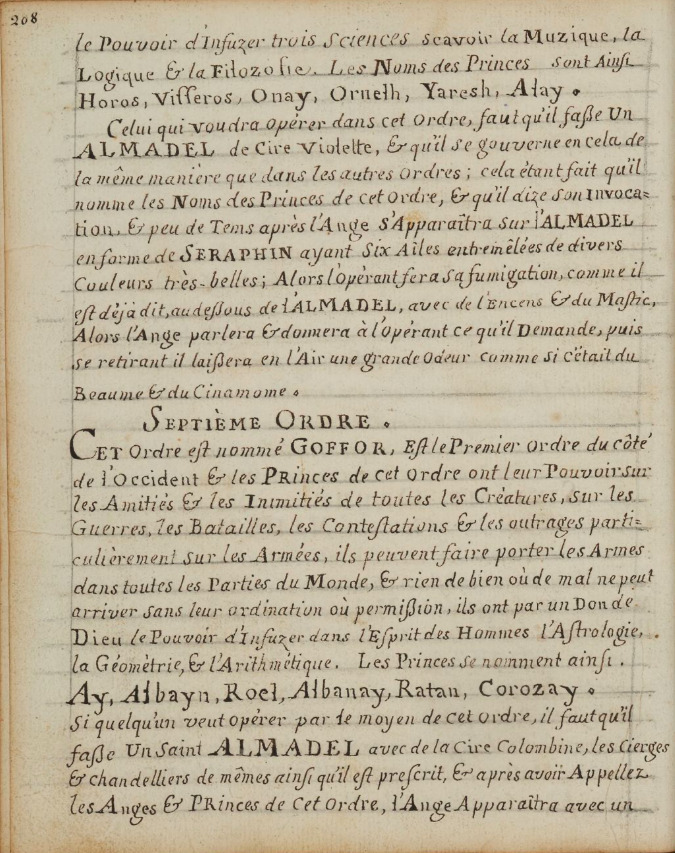 208
le Pouvoir d'Infuzer trois Sciences scavoir la Muzique, la
Logique & la Filozofie. Les Noms des Princes sont Ainsi
Horos, Visseros, Onay, Orneth, Yaresh, Alay.
Celui qui voudra opérer dans cet Ordre, faut qu'il faße Un
ALMADEL de Cire Violette, & qu'il se gouverne en cela, de
la même manière que dans les autres Ordres; cela étant fait qu'il
nomme les Noms des Princes de cet Ordre, & qu'il dize son Invoca=
tion, & peu de Tems après l'Ange S'Apparaîtra Sur l'ALMADEL
en forme de SERAPHIN ayant Six Ailes entremêlées de divers
Couleurs très-belles; Alors l'opérant fera sa fumigation, comme il
est déjà dit, au dessous de l'ALMADEL, avec de l'Encens & du Mastic,
Alors l'Ange parlera & donnera à l'opérant ce qu'il Demande, puis
se retirant il laißera en l'Air une grande Odeur comme si c'était du
Beaume & du Cinamome.
SEPTIÈME ORDRE.
CET Ordre est nommé GOFFOR, Est le Premier Ordre du côté
de l'Occident & les PRinces de cet Ordre ont leur Pouvoir sur
les Amitiés & les Inimitiés de toutes les Créatures, sur les
Guerres, les Batailles, les Contestations & les outrages parti=
culièrement sur les Armées, ils peuvent faire porter les Armes
dans toutes les Parties du Monde, & rien de bien où de mal ne peut
arriver sans leur ordination où permißion, ils ont par un Don de
Dieu le Pouvoir d'Infuzer dans l'Esprit des Hommes l'Astrologie,
la Géomètrie, & l'Arithmètique. Les Princes se nomment ainsi.
Ay, Albayn, Roel, Albanay, Ratan, Corozay.
Si quelqu'un veut opérer par le moyen de cet Ordre, il faut qu'il
faße Un Saint ALMADEL avec de la Cire Colombine, les Cierges
& chandelliers de mêmes ainsi qu'il est prescrit, & après avoir Appellez
les Anges & PRinces de Cet Ordre, l'Ange Apparaîtra avec un